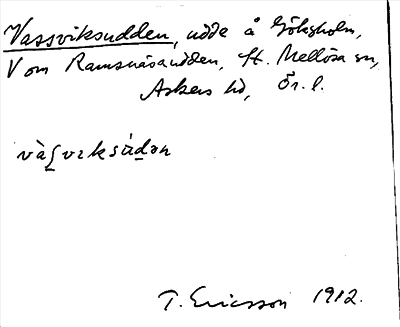 Vassviksudden, udde å Göksholm,
V om Ramsnäsaudden, St. Mellösa sn,
Askers hd, Ör. l.
T. Ericsson 1912.